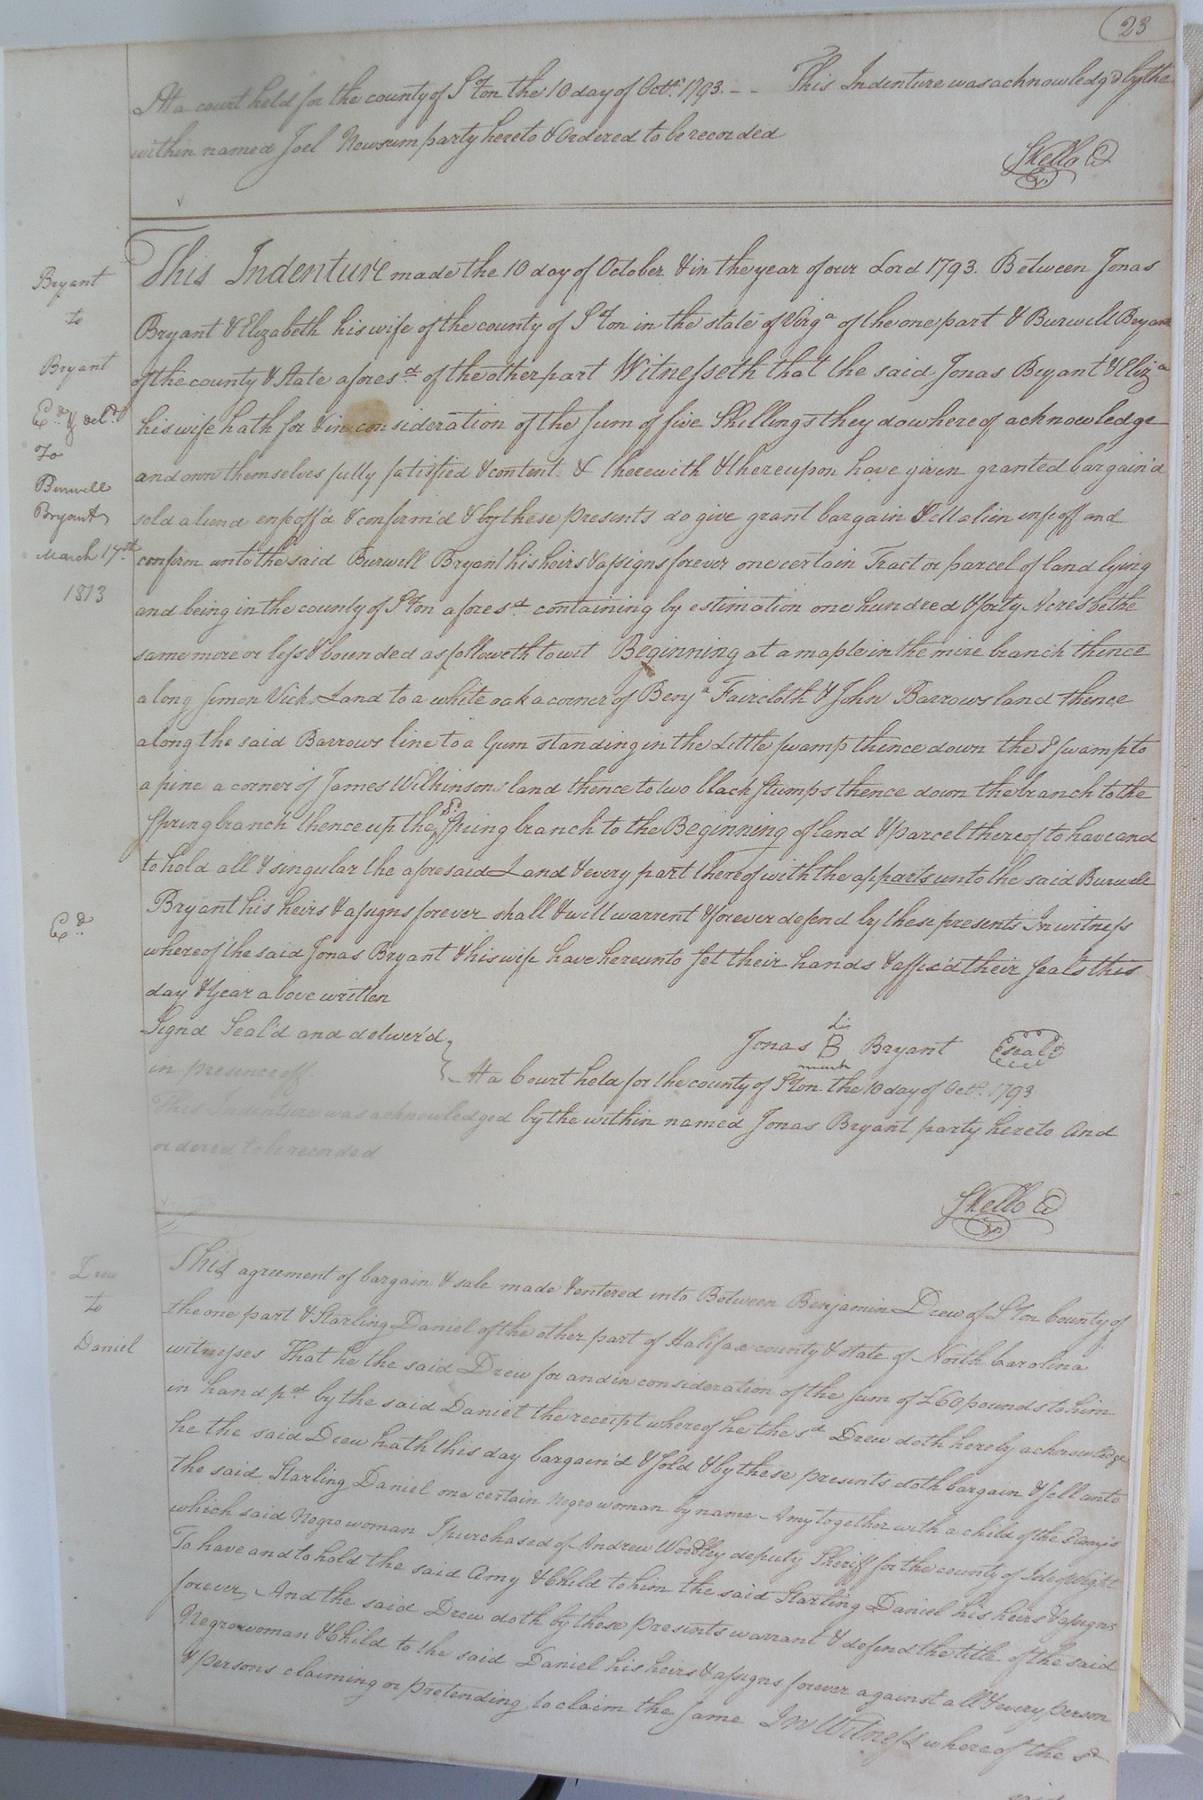 23
At a court held for the county of S°ton the 10 day of Octr. 1793. -- This Indenture was acknowledg'd by the
within named Joel Newsum party hereto & Ordered to be recorded
Skello C
Bryant
to
Bryant
Ed. & del.d
To
Burwell
Bryant
March 17th
1813
This Indenture made the 10 day of October & in the year of our Lord 1793. Between Jonas
Bryant & Elizabeth his wife of the county of S°ton in the state of Virga of the one part & Burwell Bryant
of the county & State aforesd of the other part Witnesseth that the said Jonas Bryant & Eliza
his wife hath for & in consideration of the sum of five Shillings they do whereof acknowledge
and own themselves fully satisfied & content & therewith & thereupon have given granted bargain'd
sold aliend enfeoff'd & confirm'd & by these presents do give grant bargain & sell alien infeoff and
confirm unto the said Burwell Bryant his heirs & assigns forever one certain Tract or parcel of land lying
and being in the county of S°ton aforesd containing by estimation one hundred & forty Acres be the
same more or less & bounded as followeth to wit Beginning at a maple in the mire branch thence
along Simon Vicks Land to a white oak a corner of Benja Faircloth & John Barrows land thence
along the said Barrows line to a Gum standing in the Little swamp thence down the Sd swamp to
a pine a corner of James Wilkinsons land thence to two black stumps thence down the branch to the
Spring branch thence up the sd Spring branch to the Beginning of land & parcel thereof to have and
to hold all & singular the aforesaid Land & every part thereof with the apparts unto the said Burwell
Bryant his heirs & assigns forever shall & will warrent & forever defend by these presents In witness
whereof the said Jonas Bryant & his wife have hereunto set their hands & affix'd their seals this
day & year above written
Ed.
Signd Seal'd and deliver'd
in presence off
Jonas his B mark Bryant Seal
At a Court held for the county of S°ton the 10 day of Octr. 1793
This Indenture was acknowledged by the within named Jonas Bryant party hereto And
ordered to be recorded
Skello C
Drew
to
Daniel
This agreement of bargain & sale made & entered into Between Benjamin Drew of S°ton County of
the one part & Starling Daniel of the other part of Halifax county & state of North Carolina
witnesses That he the said Drew for and in consideration of the sum of £60 pounds to him
in hand pd by the said Daniel the receipt whereof he the sd Drew doth hereby acknowledge
he the said Drew hath this day bargain'd & sold & by these presents doth bargain & sell unto
the said Starling Daniel one certain Negro woman by name Amy together with a child of the Amy's
which said Negro woman I purchased of Andrew Woodley deputy Sheriff for the county of Isle of wight
To have and to hold the said Amy & Child to him the said Starling Daniel his heirs & assigns
forever, And the said Drew doth by these presents warrant & defend the title of the said
Negro woman & Child to the said Daniel his heirs & assigns forever against all & every person
& persons claiming or pretending to claim the same In Witness whereof the sd
said